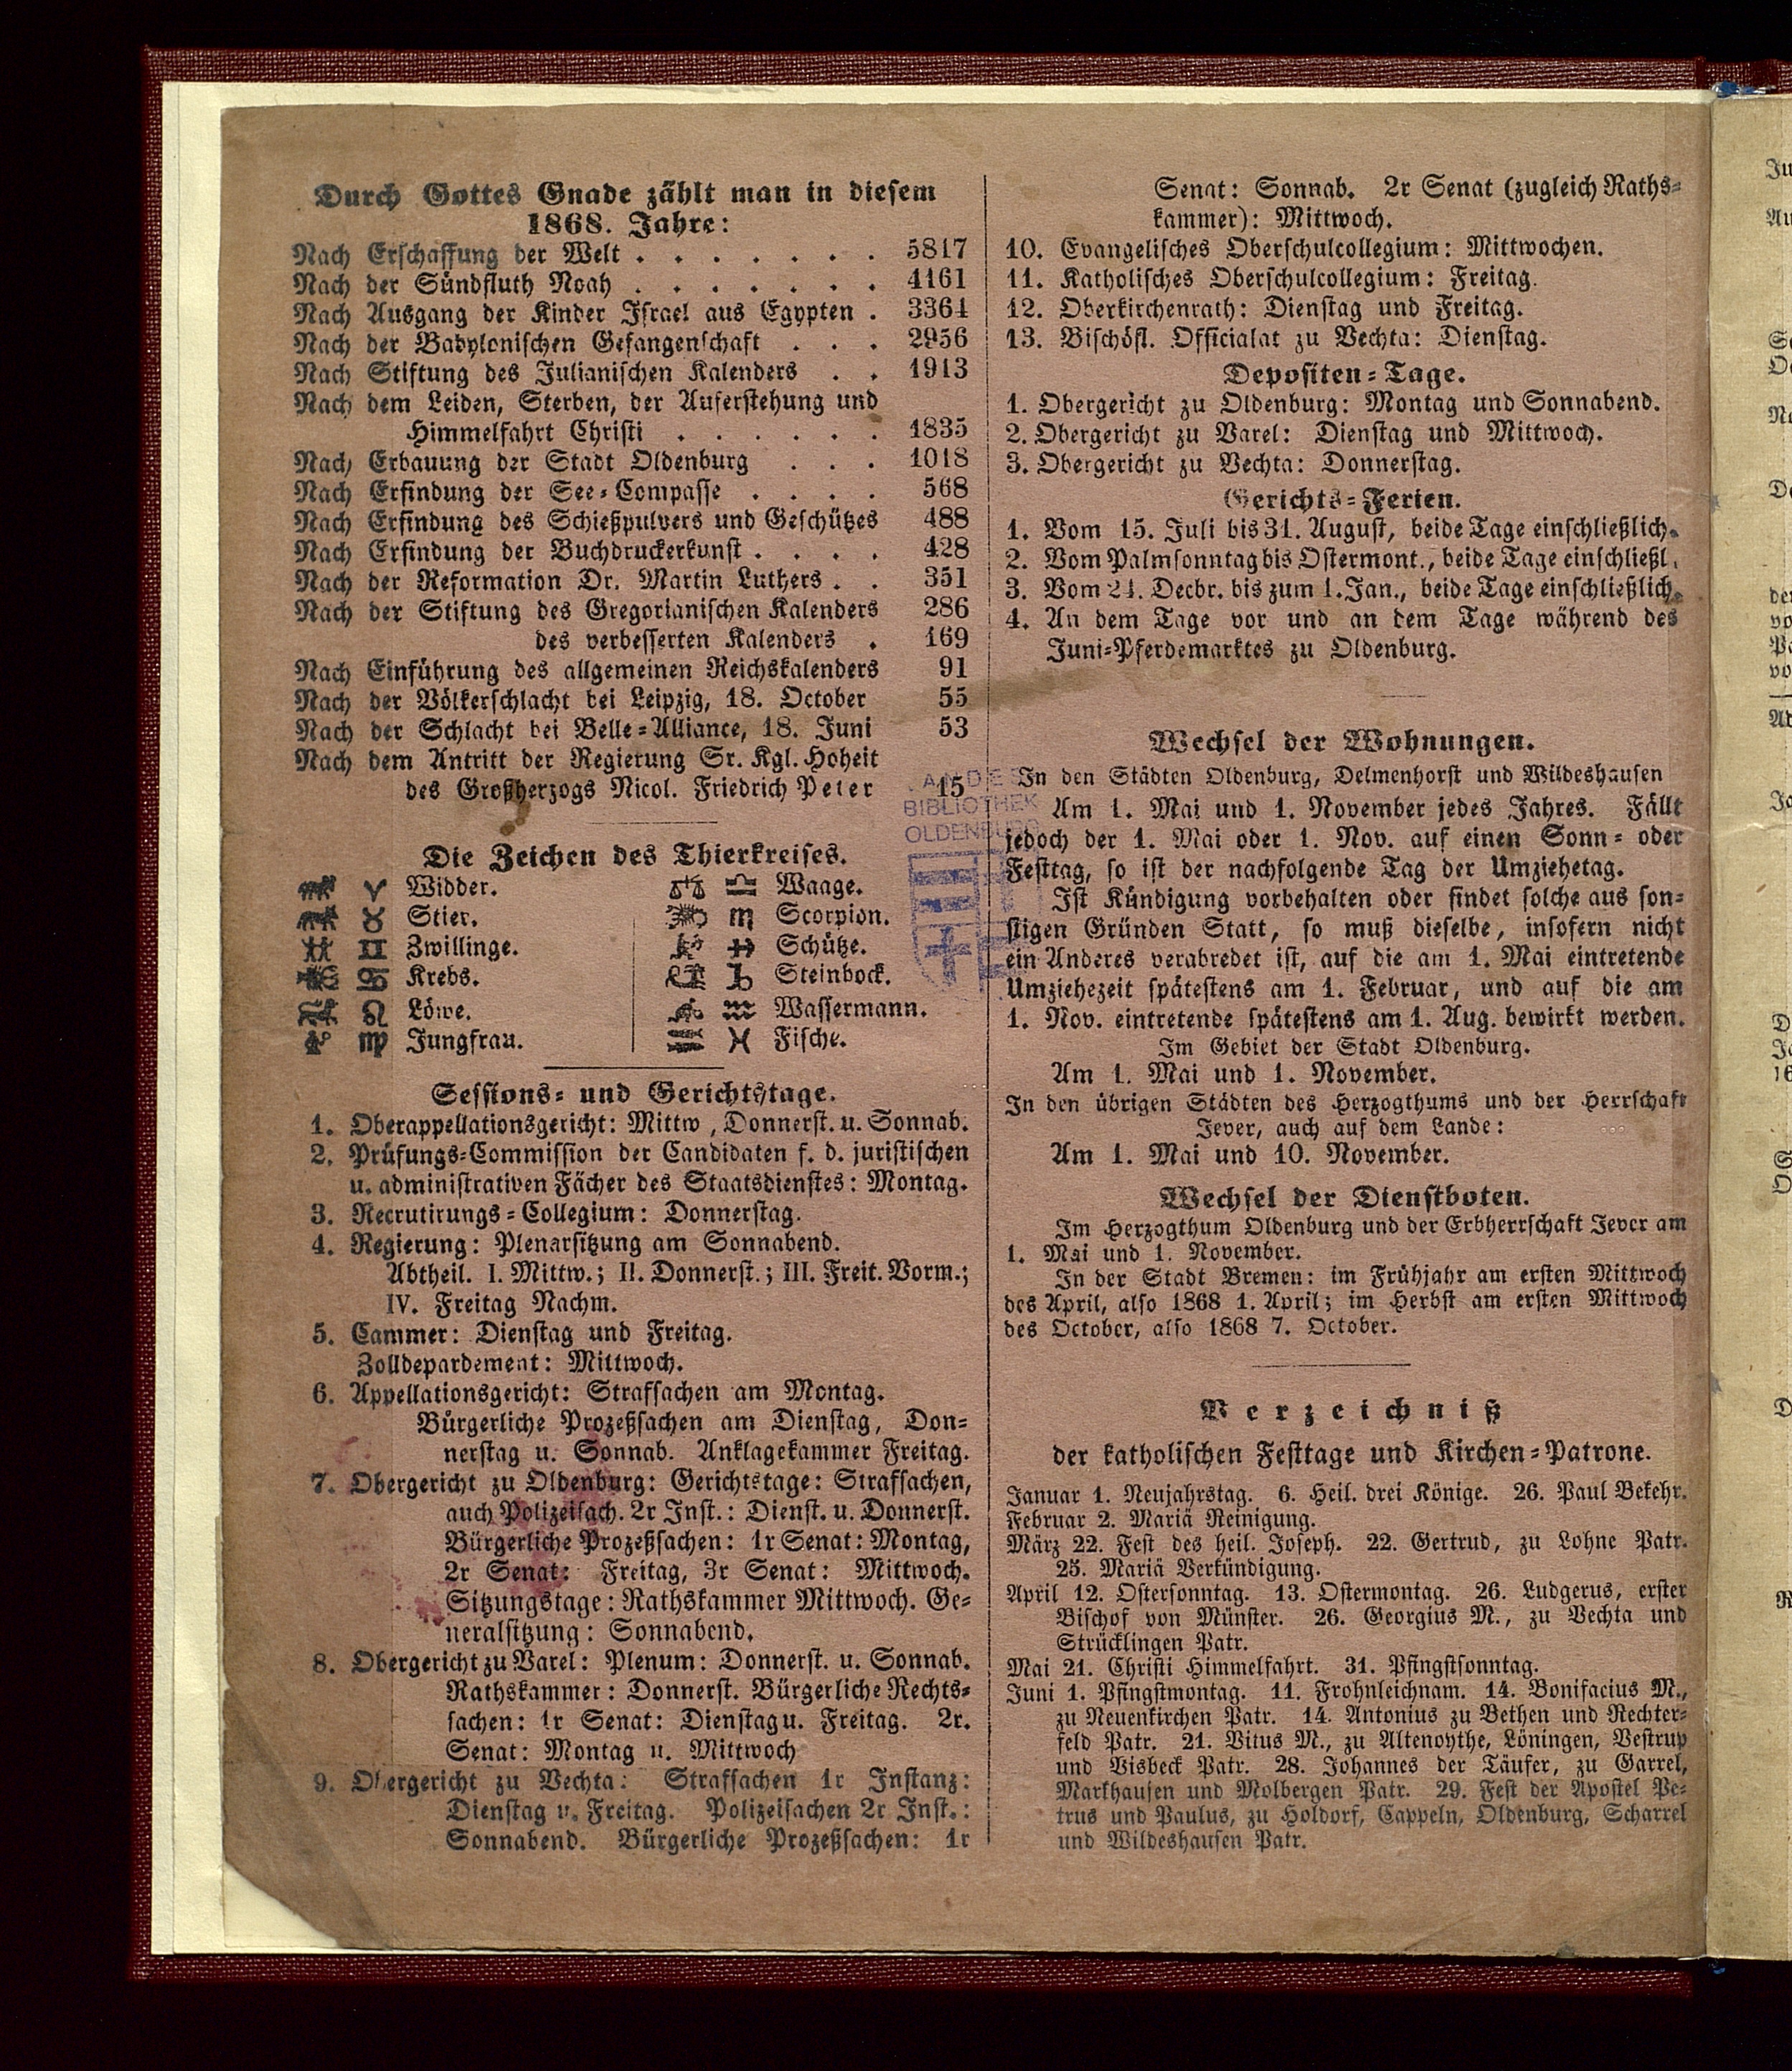 Durch Gottes Gnade zählt man in diesem
1868. Jahre:
Nach Erschaffung der Welt . . . . . . . 5817
Nach der Sündfluth Noah . . . . . . . 4161
Nach Ausgang der Kinder Israel aus Egypten . 3364
Nach der Babylonischen Gefangenschaft . . . 2956
Nach Stiftung des Julianischen Kalenders . . 1913
Nach dem Leiden, Sterben, der Auferstehung und
Himmelfahrt Christi . . . . . . 1835
Nach Erbauung der Stadt Oldenburg . . . 1018
Nach Erfindung der See-Compasse . . . . 568
Nach Erfindung des Schießpulvers und Geschützes 488
Nach Erfindung der Buchdruckerkunst . . . . 428
Nach der Reformation Dr. Martin Luthers . . 351
Nach der Stiftung des Gregorianischen Kalenders 286
des verbesserten Kalenders . 169
Nach Einführung des allgemeinen Reichskalenders 91
Nach der Völkerschlacht bei Leipzig, 18. October 55
Nach der Schlacht bei Belle-Alliance, 18. Juni 53
Nach dem Antritt der Regierung Sr. Kgl. Hoheit
des Großherzogs Nicol. Friedrich Peter 15
Die Zeichen des Thierkreises.
♈ Widder.
♉ Stier.
♊ Zwillinge.
♋ Krebs.
♌ Löwe.
♍ Jungfrau.
♎ Waage.
♏ Scorpion.
♐ Schütze.
♑ Steinbock.
♒ Wassermann.
♓ Fische.
Sessions- und Gerichtstage.
1. Oberappellationsgericht: Mittw, Donnerst. u. Sonnab.
2. Prüfungs-Commission der Candidaten f. d. juristischen
u. administrativen Fächer des Staatsdienstes: Montag.
3. Recrutirungs-Collegium: Donnerstag.
4. Regierung: Plenarsitzung am Sonnabend.
Abtheil. I. Mittw.; II. Donnerst.; III. Freit. Vorm.;
IV. Freitag Nachm.
5. Cammer: Dienstag und Freitag.
Zolldepardement: Mittwoch.
6. Appellationsgericht: Strafsachen am Montag.
Bürgerliche Prozeßsachen am Dienstag, Don-
nerstag u. Sonnab. Anklagekammer Freitag.
7. Obergericht zu Oldenburg: Gerichtstage: Strafsachen,
auch Polizeisach. 2r Inst.: Dienst. u. Donnerst.
Bürgerliche Prozeßsachen: 1r Senat: Montag,
2r Senat: Freitag, 3r Senat: Mittwoch.
Sitzungstage: Rathskammer Mittwoch. Ge-
neralsitzung: Sonnabend.
8. Obergericht zu Varel: Plenum: Donnerst. u. Sonnab.
Rathskammer: Donnerst. Bürgerliche Rechts-
sachen: 1r Senat: Dienstag u. Freitag. 2r.
Senat: Montag u. Mittwoch
9. Obergericht zu Vechta: Strafsachen 1r Instanz:
Dienstag u. Freitag. Polizeisachen 2r Inst.:
Sonnabend. Bürgerliche Prozeßsachen: 1r
Senat: Sonnab. 2r Senat (zugleich Raths-
kammer): Mittwoch.
10. Evangelisches Oberschulcollegium: Mittwochen.
11. Katholisches Oberschulcollegium: Freitag.
12. Oberkirchenrath: Dienstag und Freitag.
13. Bischöfl. Officialat zu Vechta: Dienstag.
Depositen-Tage.
1. Obergericht zu Oldenburg: Montag und Sonnabend.
2. Obergericht zu Varel: Dienstag und Mittwoch.
3. Obergericht zu Vechta: Donnerstag.
Gerichts-Ferien.
1. Vom 15. Juli bis 31. August, beide Tage einschließlich.
2. Vom Palmsonntag bis Ostermont., beide Tage einschließl.
3. Vom 24. Decbr. bis zum 1. Jan., beide Tage einschließlich.
4. An dem Tage vor und an dem Tage während des
Juni-Pferdemarktes zu Oldenburg.
Wechsel der Wohnungen.
In den Städten Oldenburg, Delmenhorst und Wildeshausen
Am 1. Mai und 1. November jedes Jahres. Fällt
jedoch der 1. Mai oder 1. Nov. auf einen Sonn- oder
Festtag, so ist der nachfolgende Tag der Umziehetag.
Ist Kündigung vorbehalten oder findet solche aus son-
stigen Gründen Statt, so muß dieselbe, insofern nicht
ein Anderes verabredet ist, auf die am 1. Mai eintretende
Umziehezeit spätestens am 1. Februar, und auf die am
1. Nov. eintretende spätestens am 1. Aug. bewirkt werden.
Im Gebiet der Stadt Oldenburg.
Am 1. Mai und 1. November.
In den übrigen Städten des Herzogthums und der Herrschaft
Jever, auch auf dem Lande:
Am 1. Mai und 10. November.
Wechsel der Dienstboten.
Im Herzogthum Oldenburg und der Erbherrschaft Jever am
1. Mai und 1. November.
In der Stadt Bremen: im Frühjahr am ersten Mittwoch
des April, also 1868 1. April; im Herbst am ersten Mittwoch
des October, also 1868 7. October.
Verzeichniß
der katholischen Festtage und Kirchen-Patrone.
Januar 1. Neujahrstag. 6. Heil. drei Könige. 26. Paul Bekehr.
Februar 2. Mariä Reinigung.
März 22. Fest des heil. Joseph. 22. Gertrud, zu Lohne Patr.
25. Mariä Verkündigung.
April 12. Ostersonntag. 13. Ostermontag. 26. Ludgerus, erster
Bischof von Münster. 26. Georgius M., zu Vechta und
Strücklingen Patr.
Mai 21. Christi Himmelfahrt. 31. Pfingstsonntag.
Juni 1. Pfingstmontag. 11. Frohnleichnam. 14. Bonifacius M.,
zu Neuenkirchen Patr. 14. Antonius zu Bethen und Rechter-
feld Patr. 21. Vitus M., zu Altenoythe, Löningen, Vestrup
und Visbeck Patr. 28. Johannes der Täufer, zu Garrel,
Markhausen und Molbergen Patr. 29. Fest der Apostel Pe-
trus und Paulus, zu Holdorf, Cappeln, Oldenburg, Scharrel
und Wildeshausen Patr.
BIBLIOTHEK
OLDENBURG